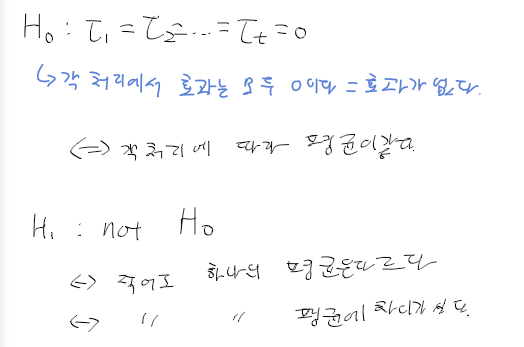 H₀ : τ₁ = τ₂ = ... = τt = 0
↳ 각 처리에서 효과는 모두 0이다 = 효과가 없다.
<=> 각 처리에 따라 평균이 같다.
H₁ : not H₀
<-> 적어도 하나의 평균은 다르다
<-> 〃 〃 평균에 차이가 있다.